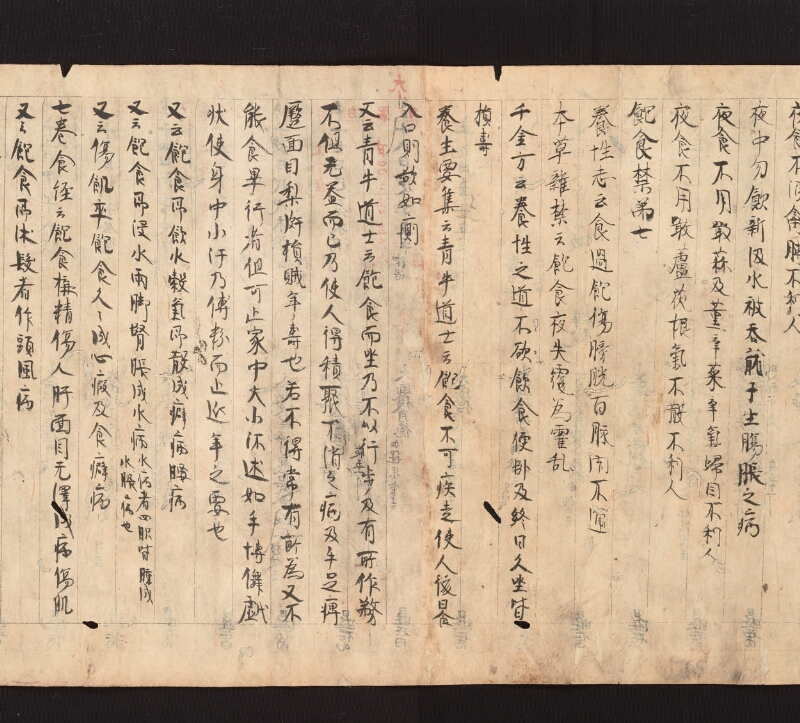 夜食不須禽膊不利人
夜中勿飲新汲水被吞龍子生腸脹之病
夜食不用噉蒜及薫辛菜辛氣歸目不利人
夜食不用噉蘆茯根氣不散不利人
飽食禁第七
養性志云食過飽傷膀胱百脈閇不通
本草雜禁云飽食夜失覆為霍乱
千金方云養性之道不欲飽食便卧及終日久坐皆
損壽
養生要集云青牛道士云飽食不可疾走使人後日食
入口則欲如廁
又云青牛道士云飽食而坐乃不以行步及有所作務
不但无益而已乃使人得積聚不消之病及手足痺
蹷面目梨皯損賊年壽也若不得常有所為又不
能食畢行者但可止家中大小述如手博儛戯
状使身中小汗乃傅粉而止延年之要也
又云飽食即飲水穀氣即散成癖病腰病
又云飽食即浸水兩脚腎脹成水病水病者四肢皆腫成水脹病也
又云傷飢卒飽食久久成心瘕及食癖病
七卷食經云飽食損精傷人肝面目无澤成病傷肌
又云飽食即沐髮者作頭風病